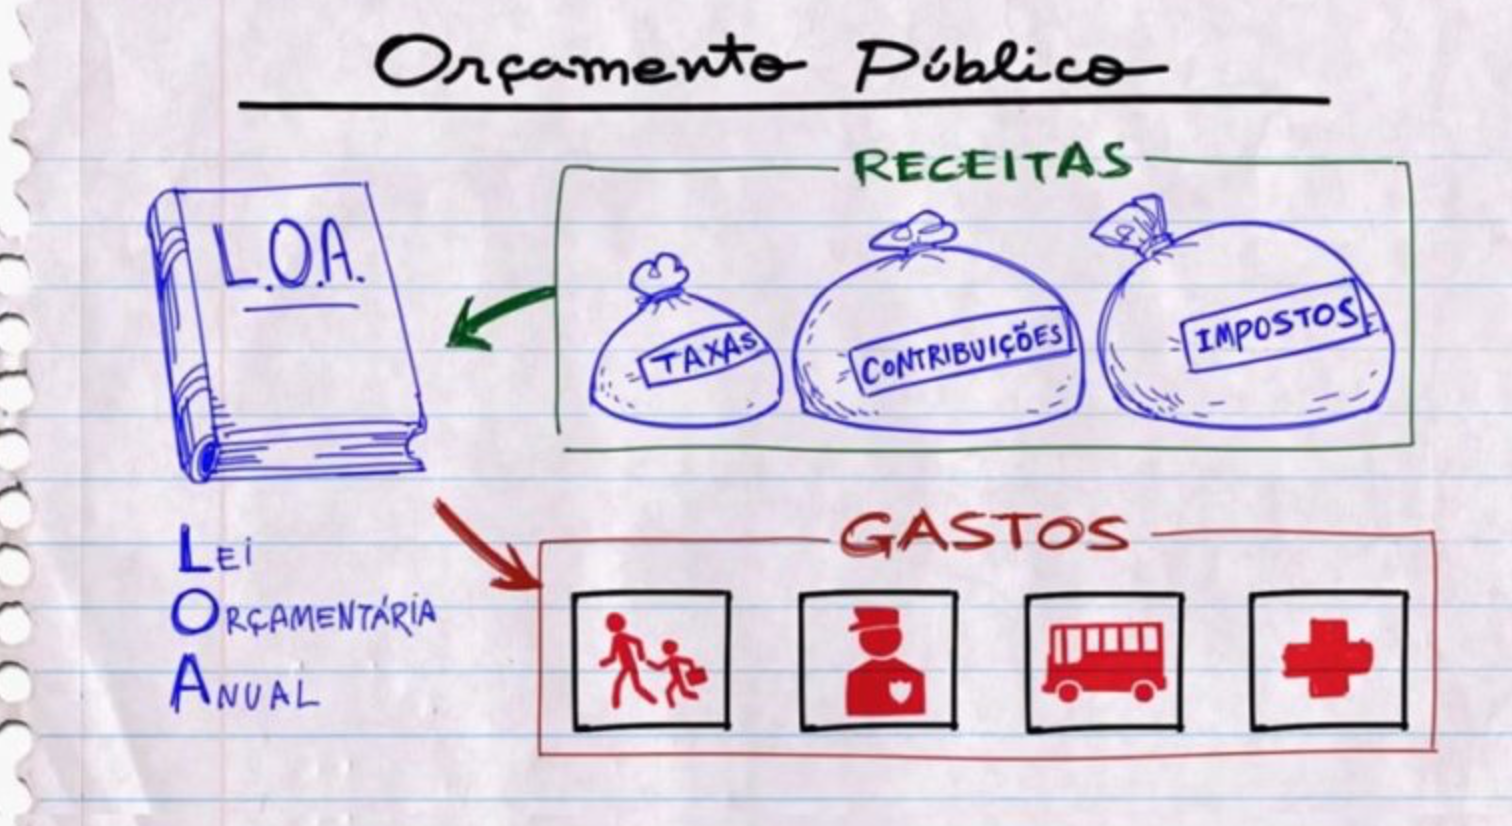 Orçamento Público
RECEITAS
L.O.A.
TAXAS
CONTRIBUIÇÕES
IMPOSTOS
GASTOS
LEI
ORÇAMENTÁRIA
ANUAL